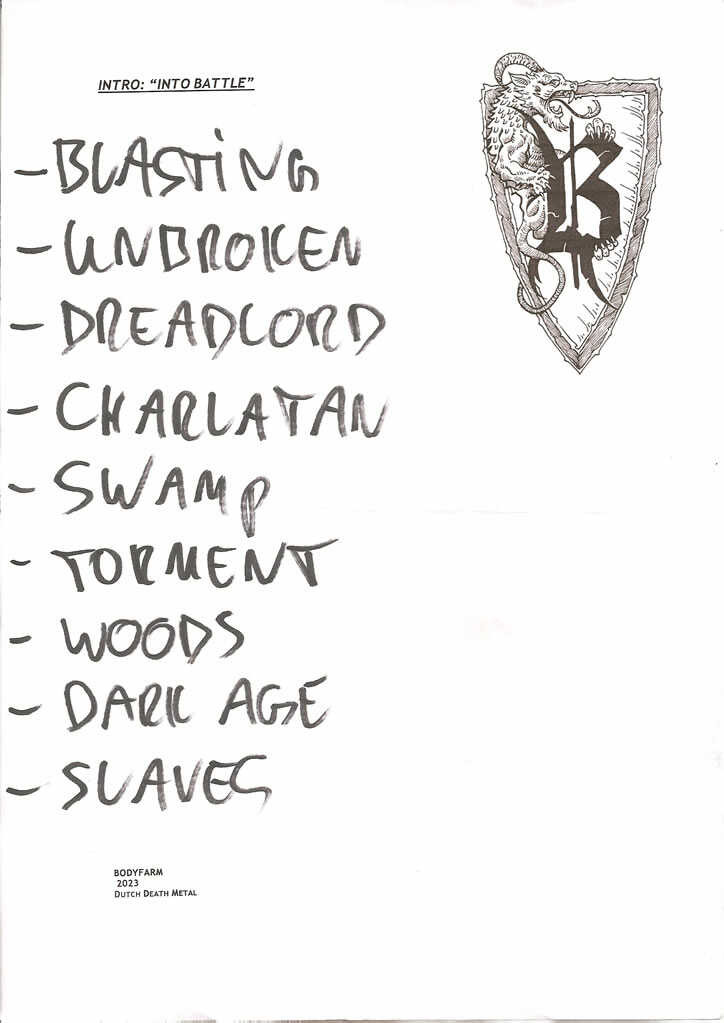 INTRO: “INTO BATTLE”
B
- BLASTING
- UNBROKEN
- DREADLORD
- CHARLATAN
- SWAMP
- TORMENT
- WOODS
- DARK AGE
- SLAVES
BODYFARM
2023
DUTCH DEATH METAL